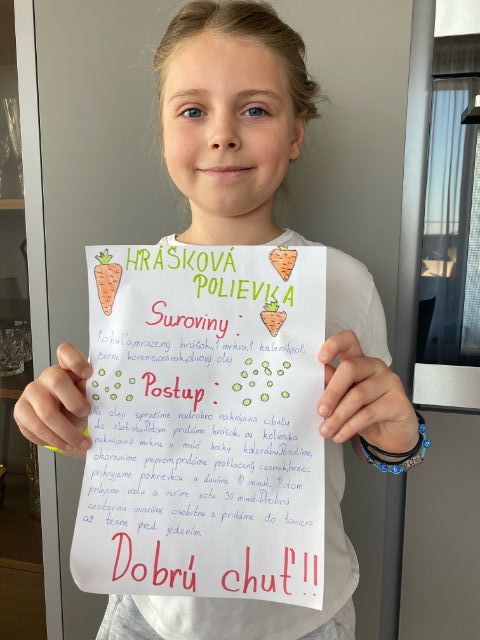 HRÁŠKOVÁ
POLIEVKA
Suroviny :
1 cibuľa, mrazený hrášok, 1 mrkva, 1 kaleráb, soľ,
čierne korenie, cesnak, olivový olej
Postup :
Na oleji spražíme nadrobno nakrájanú cibuľu
do zlatista. Potom pridáme hrášok, na kolieska
nakrájanú mrkvu a malé kocky kalerábu. Posolíme,
okoreníme peprem, pridáme pretlačený cesnak, hrniec
prikryjeme pokrievkou a dusíme 10 minút. Potom
prilejeme vodu a varíme ešte 30 minút. Drobnú
cestovinu uvaríme osobitne a pridáme do taniera
až tesne pred jedením.
Dobrú chuť!!